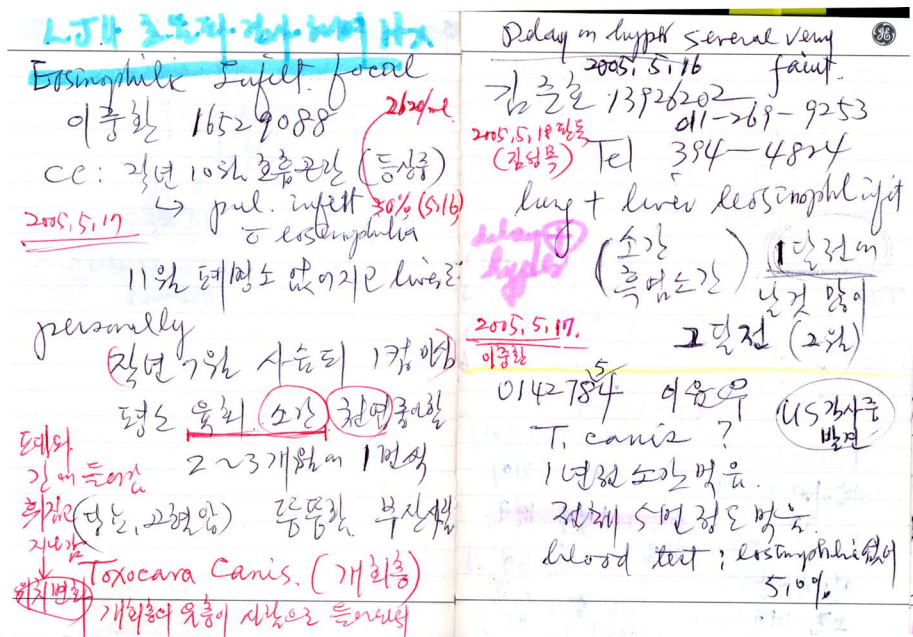 LJH 초음파 검사하며 Hx
Eosinophilic Infilt. focal
이중환 16529088
2620/ml
cc: 작년 10월 호흡곤란 (등상중)
→ pul. infilt 30% (5.16)
c̄ eosinophilia
2005, 5, 17
11월 폐병소 없어지고 liver로
personally
(작년 7월 사슴피 1컵 마심)
평소 육회, 소간, 천엽 좋아함
2~3개월에 1번씩
폐와
간에 들어감
휘젓고
지나감
위치변화
(당뇨, 고혈압) 뚱뚱함, 부산사람
Toxocara Canis. (개회충)
개회충의 유충이 사람으로 들어와서
Delay on hyper several very
faint.
2005, 5, 16
김준호 13926202
011-269-9253
2005, 5, 18 판독
(김성목)
Tel 394-4824
lung + liver eosinophl infilt
delay
hyper
(소간
흑염소간)
1달전에
날것 많이
그달전 (2월)
2005, 5, 17.
이중환
5
0142784
US 검사중
발견
T. canis ?
1년전 소간 먹음.
전체 5번정도 먹음.
blood test ; eosinophilia 없어
5.0%